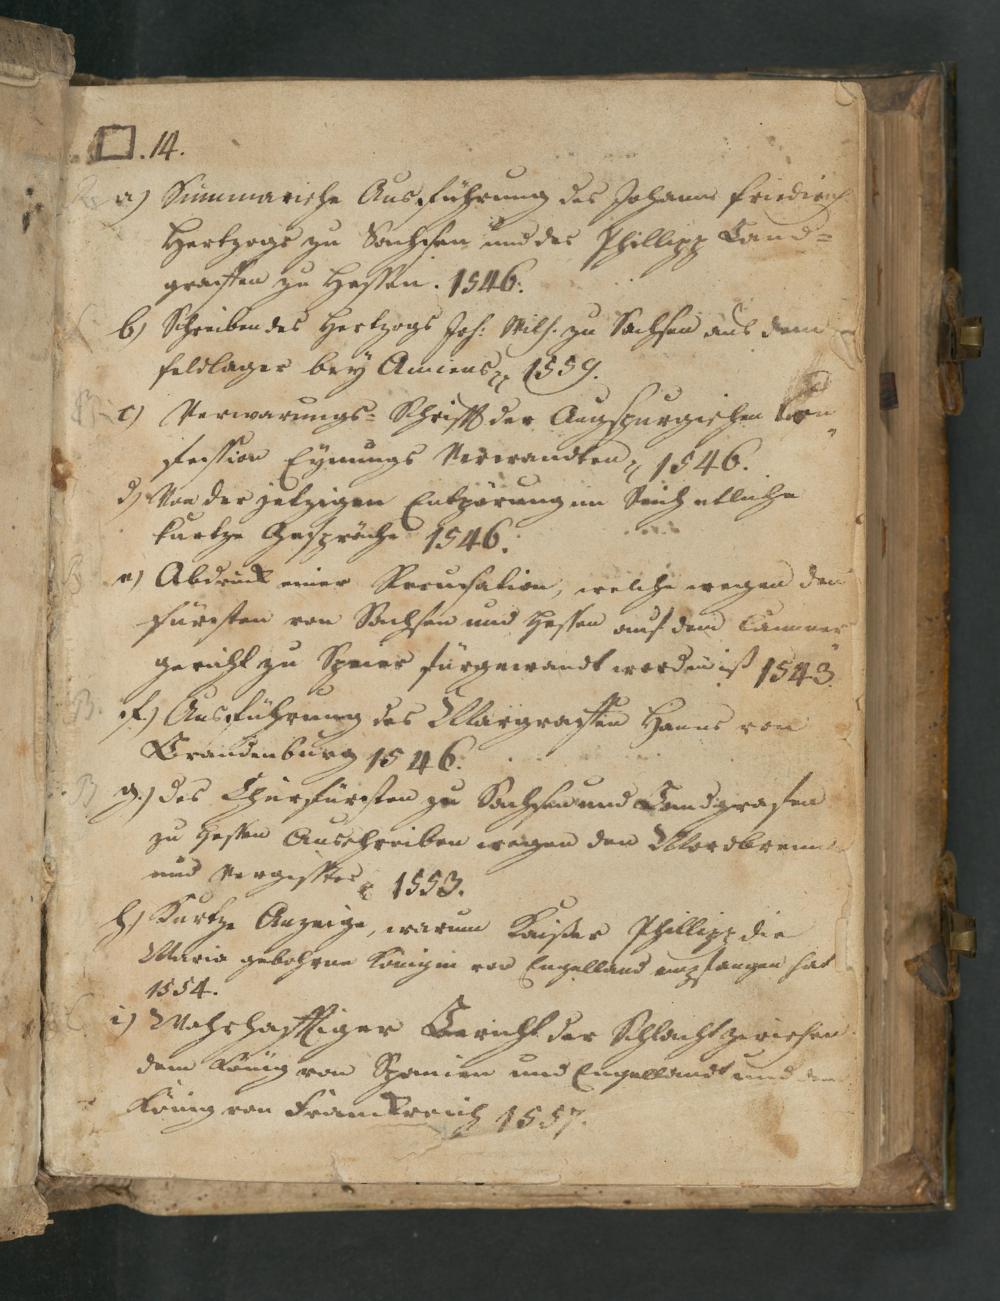 □.14.
a) Summarische Ausführung des Johann Friedrich
Hertzogs zu Sachsen und des Phillipp Land=
graffen zu Hessen. 1546.
b) Schreiben des Hertzogs Joh: Wilh. zu Sachsen aus dem
feldlager bey Amiens 1559.
c) Verwarungs= Schrifft der Augspurgischen Con
fession Eynungs Verwandten 1546.
d) Von der jetzigen Entpörung im Reich etliche
kurtze Gespräche 1546.
e) Abdruck einer Recusation, welche wegen den
Fürsten von Sachsen und Hessen auf dem Cammer
gericht zu Speier fürgewandt worden ist 1543.
f.) Ausführung des Marggraffen Hanns von
Brandenburg 1546.
g.) des Churfürsten zu Sachsen und Landgrafen
zu Hessen Ausschreiben wegen den Mordbrenner
und Vergiffter 1553.
h) Kurtze Anzeige, warum Kaiser Phillipp die
Maria gebohrne Königin von Engelland empfangen hat
1554.
i) Wahrhafftiger Bericht der Schlacht zwischen
dem König von Spanien und Engellandt und dem
König von Franckreich 1557.